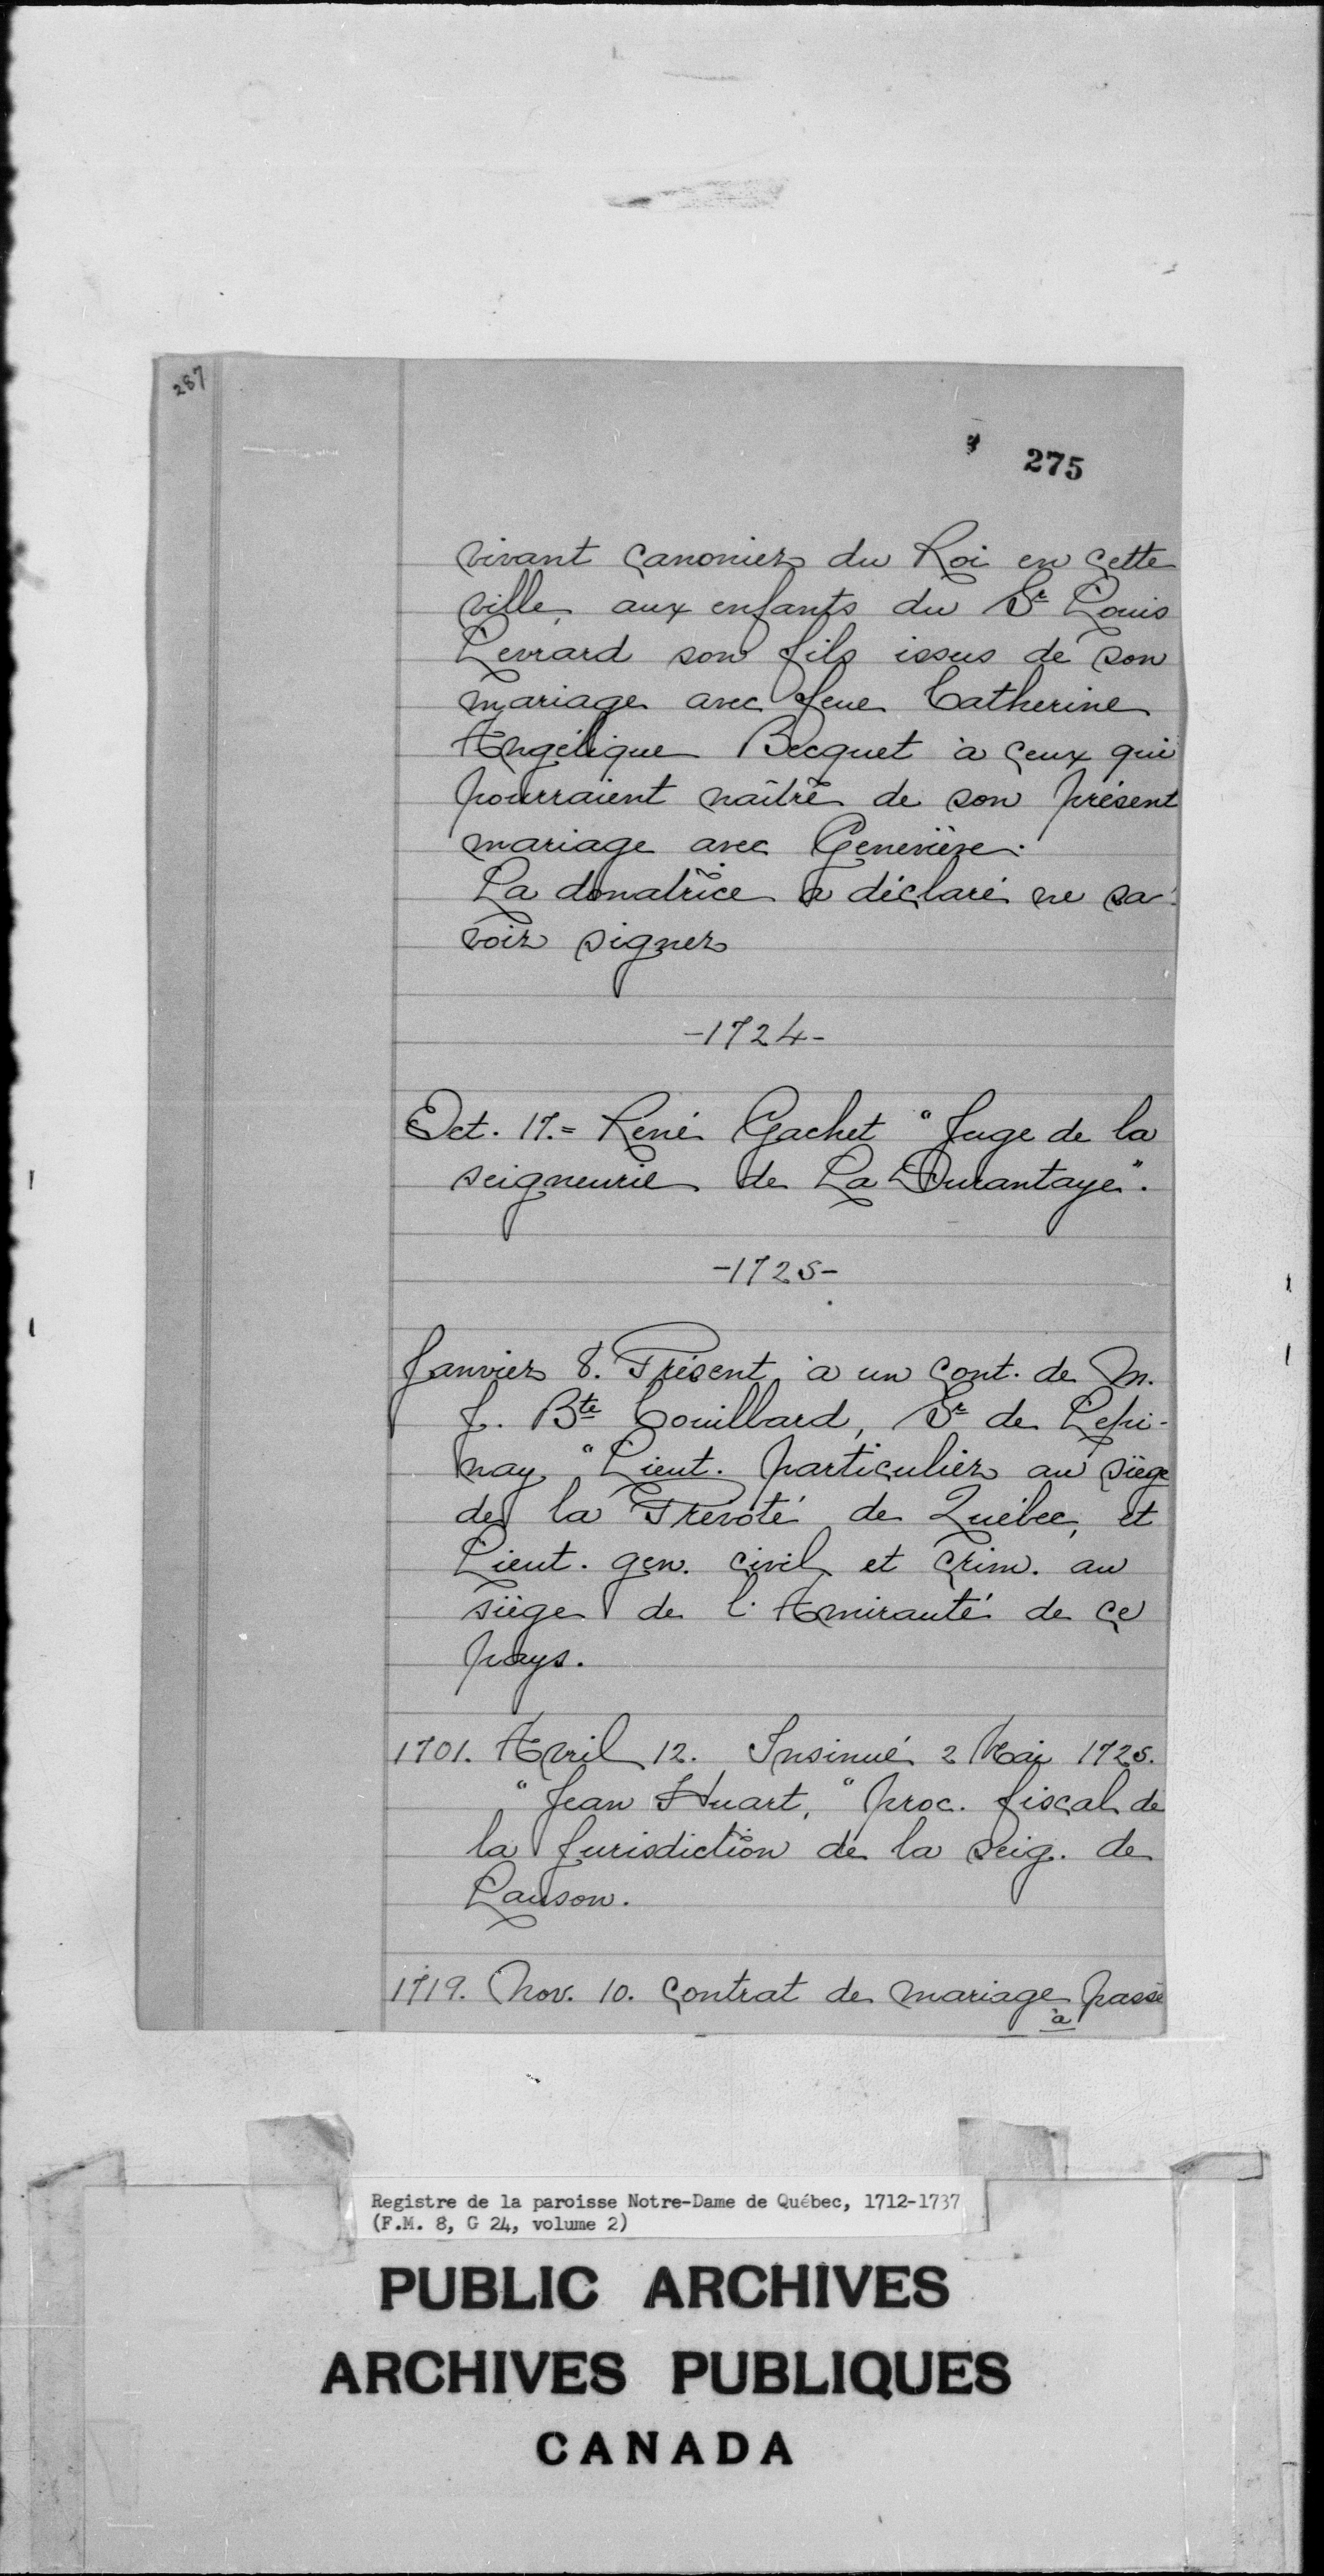 287
275
vivant canonier du Roi en cette
ville, aux enfants du Sr Louis
Levrard son fils issus de son
mariage avec feue Catherine
Angélique Becquet à ceux qui
pourraient naître de son présent
mariage avec Geneviève.
La donatrice a déclaré ne sa-
voir signer
-1724-
Oct. 17.= René Gachet "Juge de la
seigneurie de La Durantaye".
-1725-
Janvier 8. Présent à un cont. de M.
J. Bte Couillard, Sr de Lepi-
nay "Lieut. particulier au siège
de la Prévoté de Québec, et
Lieut. gen. civil et crim. au
siège de l'Amirauté de ce
pays.
1701. Avril 12. Insinué 2 Mai 1725.
"Jean Huart, "proc. fiscal de
la Jurisdiction de la seig. de
Lauson.
1719. Nov. 10. Contrat de mariage passé
à
Registre de la paroisse Notre-Dame de Québec, 1712-1737
(F.M. 8, G 24, volume 2)
PUBLIC ARCHIVES
ARCHIVES PUBLIQUES
CANADA